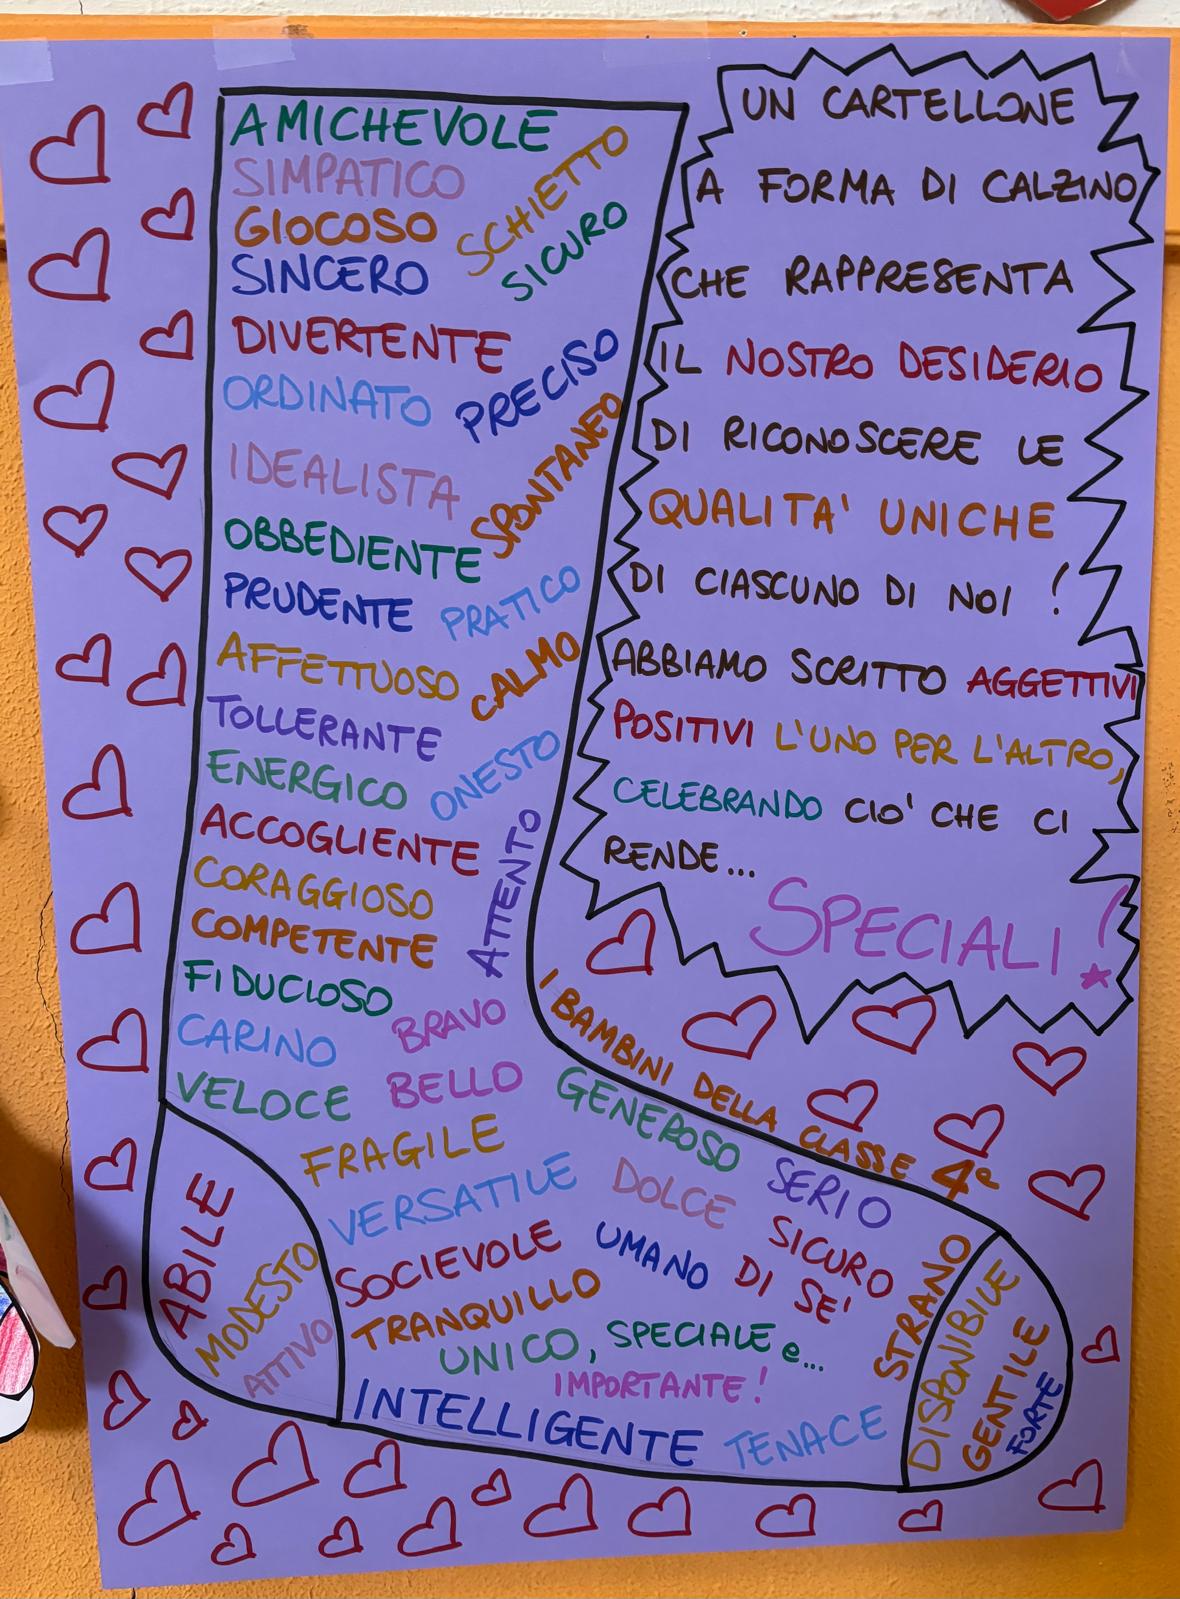 UN CARTELLONE
A FORMA DI CALZINO
CHE RAPPRESENTA
IL NOSTRO DESIDERIO
DI RICONOSCERE LE
QUALITA' UNICHE
DI CIASCUNO DI NOI !
ABBIAMO SCRITTO AGGETTIVI
POSITIVI L'UNO PER L'ALTRO,
CELEBRANDO CIO' CHE CI
RENDE...
SPECIALI !
I BAMBINI DELLA CLASSE 4ª
AMICHEVOLE
SIMPATICO
SCHIETTO
GIOCOSO
SICURO
SINCERO
DIVERTENTE
PRECISO
ORDINATO
SPONTANEO
IDEALISTA
OBBEDIENTE
PRUDENTE
PRATICO
AFFETTUOSO
CALMO
TOLLERANTE
ONESTO
ENERGICO
ACCOGLIENTE
ATTENTO
CORAGGIOSO
COMPETENTE
FIDUCIOSO
BRAVO
CARINO
BELLO
VELOCE
GENEROSO
FRAGILE
SERIO
DOLCE
VERSATILE
SICURO
DI SE'
UMANO
SOCIEVOLE
TRANQUILLO
STRANO
UNICO, SPECIALE e...
IMPORTANTE!
INTELLIGENTE
TENACE
ABILE
MODESTO
ATTIVO
DISPONIBILE
GENTILE
FORTE